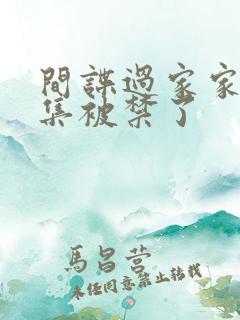 間諜過家家
集被禁了
馬昌营
未任同意禁止轉載